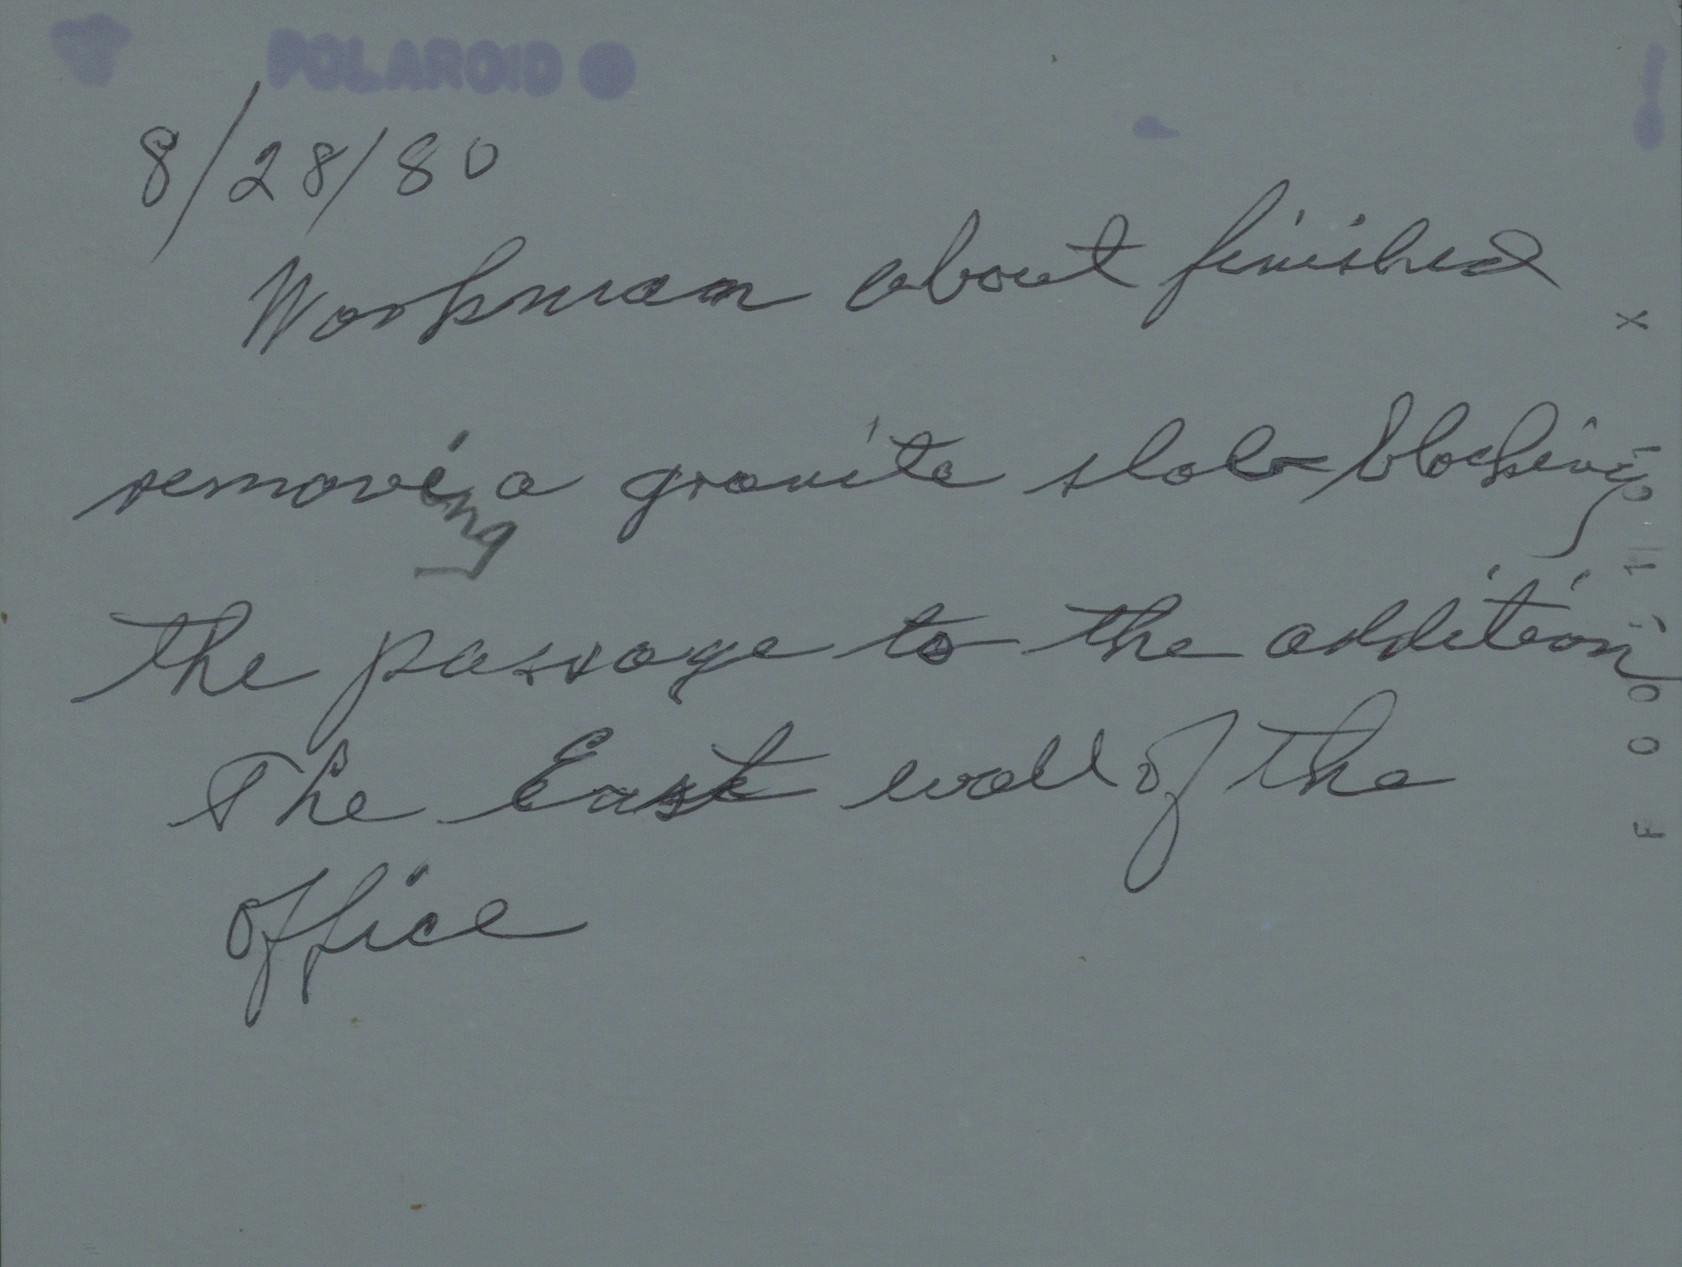 POLAROID
8/28/80
Workman about finished
removing a granite slab blocking
the passage to the addition
The East wall of the
office